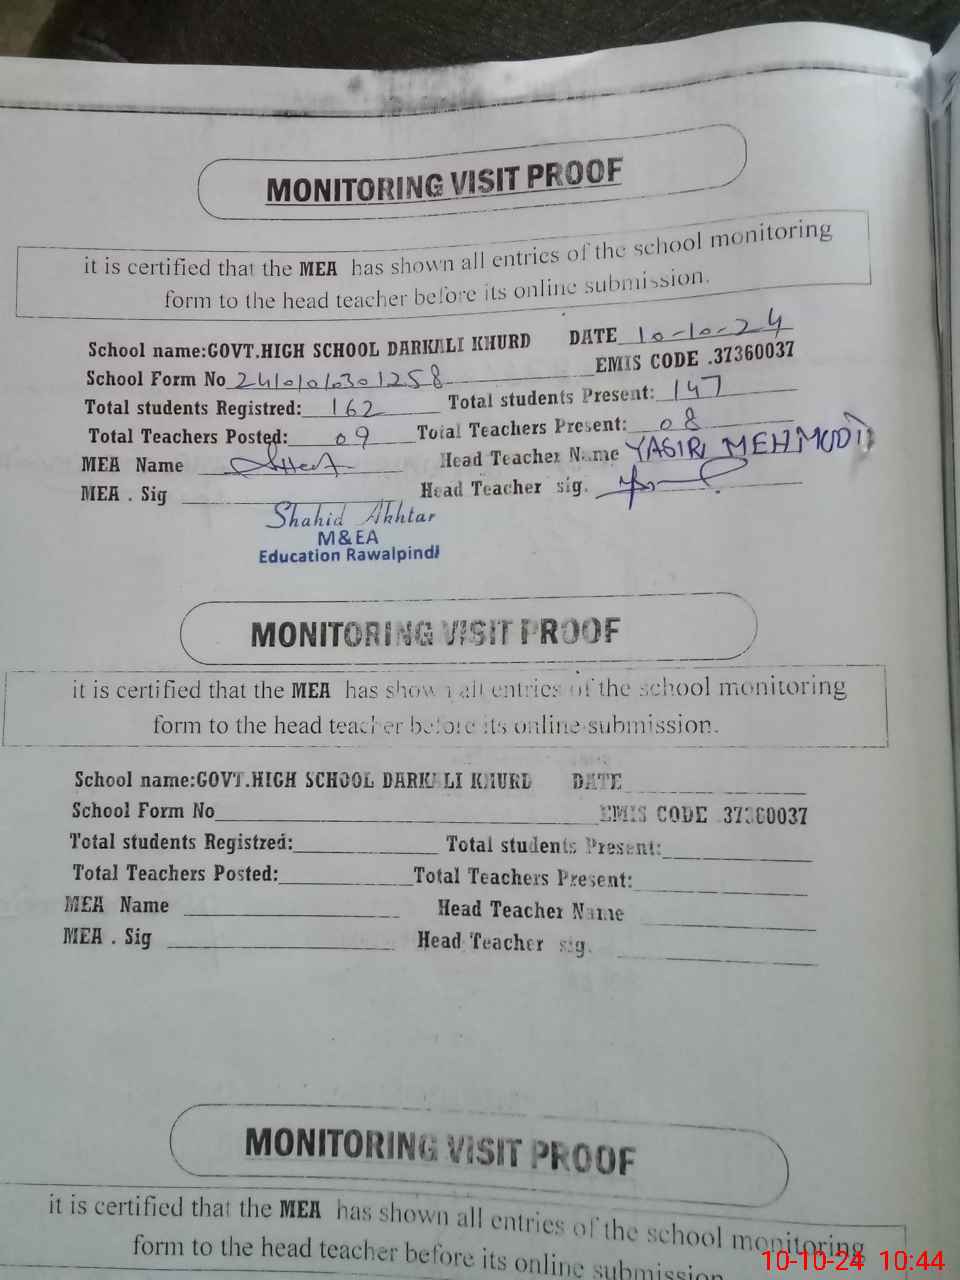 MONITORING VISIT PROOF
it is certified that the MEA has shown all entries of the school monitoring
form to the head teacher before its online submission.
School name:GOVT.HIGH SCHOOL DARKALI KHURD DATE 10-10-24
School Form No EMIS CODE .37360037
Total students Registred: 162 Total students Present: 147
Total Teachers Posted: 09 Total Teachers Present: 08
MEA Name Head Teacher Name YASIR MEHMOOD
MEA . Sig Head Teacher sig.
Shahid Akhtar
M&EA
Education Rawalpindi
MONITORING VISIT PROOF
it is certified that the MEA has shown all entries of the school monitoring
form to the head teacher before its online submission.
School name:GOVT.HIGH SCHOOL DARKALI KHURD DATE
School Form No EMIS CODE .37360037
Total students Registred: Total students Present:
Total Teachers Posted: Total Teachers Present:
MEA Name Head Teacher Name
MEA . Sig Head Teacher sig.
MONITORING VISIT PROOF
it is certified that the MEA has shown all entries of the school monitoring
form to the head teacher before its online submission
10-10-24 10:44